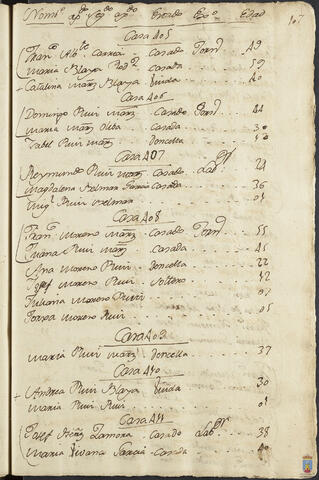 Nomᵉ ap° Seg° ap° Estado Exº Edad
107
Casa 405
Franco Casado Jorn 49
Maria Blaya Rodz Casada 59
Catalina Marz Blaya Viuda 40
Casa 406
Domingo Ruiz Marz Casado Jorn 44
Maria Marz Casada 30
Isabel Ruiz Marz doncella
Casa 407
Reymundo Ruiz Marz Casado Labor 29
Magdalena Belman Garcia Casada 36
Migl Ruiz Velman 01
Casa 408
Franco Moreno Marz Casado Jorn 55
Juana Ruiz Marz Casada 45
Ana Moreno Ruiz doncella 22
Josef Moreno Ruiz Soltero 12
Juliana Moreno Ruiz 07
Moreno Ruiz 05
Casa 409
Maria Ruiz Marz doncella 37
Casa 410
Andrea Ruiz Blaya Viuda 30
Maria Ruiz Ruiz 01
Casa 411
Josef Zamora Casado Labor 38
Maria Vivana Garcia Casada 40